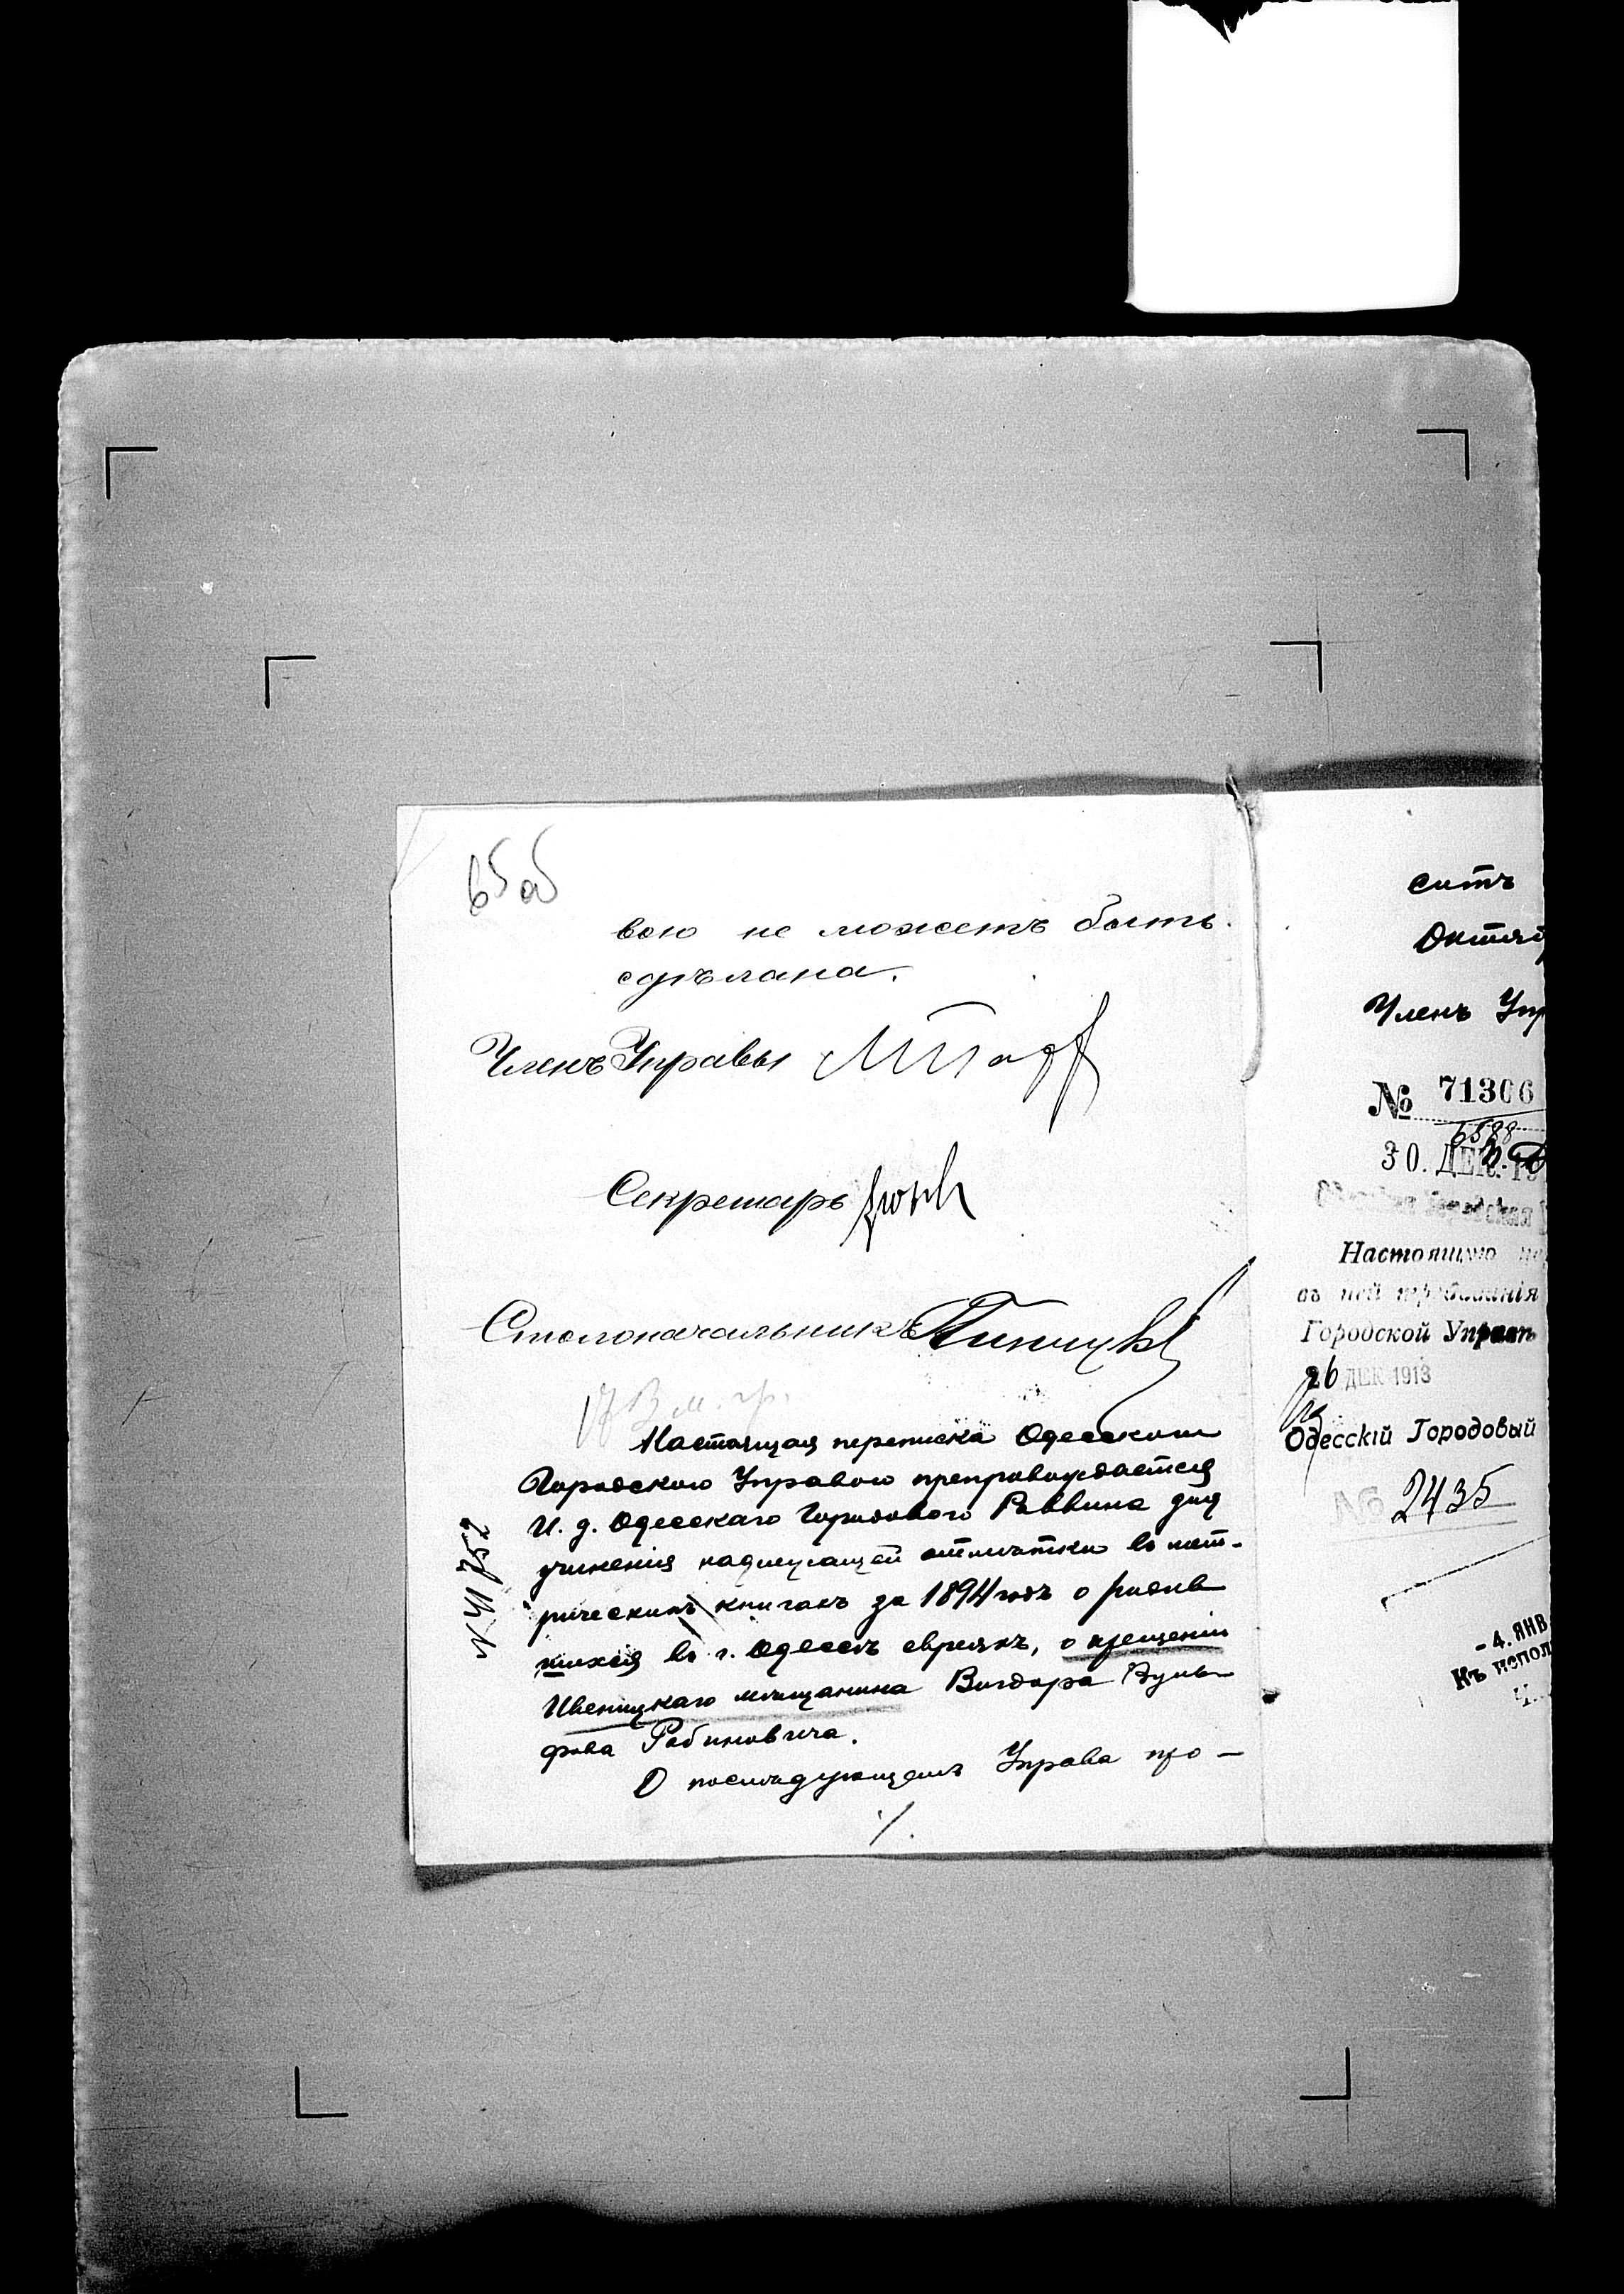 65 об
вою не можетъ быть
сдѣлана.
Членъ Управы
Секретарь
Столоначальникъ
Настоящая переписка Одесскою
Городскою Управою препровождается
И. д. Одесскаго Городового Раввина для
учиненія надлежащей отмѣтки въ мет-
рическихъ книгахъ за 1894 годъ о родив
шихся въ г. Одессѣ евреяхъ, о крещеніи
Ивеницкаго мѣщанина Вигдора
Рабиновича.
О послѣдующемъ Управа про-
/.
ситъ
Октяб
Членъ Упр
№ 71306
6588
30. ДЕК. 19
Городская
Настоящую пе
съ ней требованія
Городской Управ
26 ДЕК 1913
Одесскій Городовый
№ 2435
-4. ЯНВ.
Къ испол